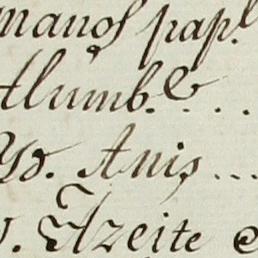 manos pap.l
Alumb.e . . .
Yd. Anis ...
. Azeite